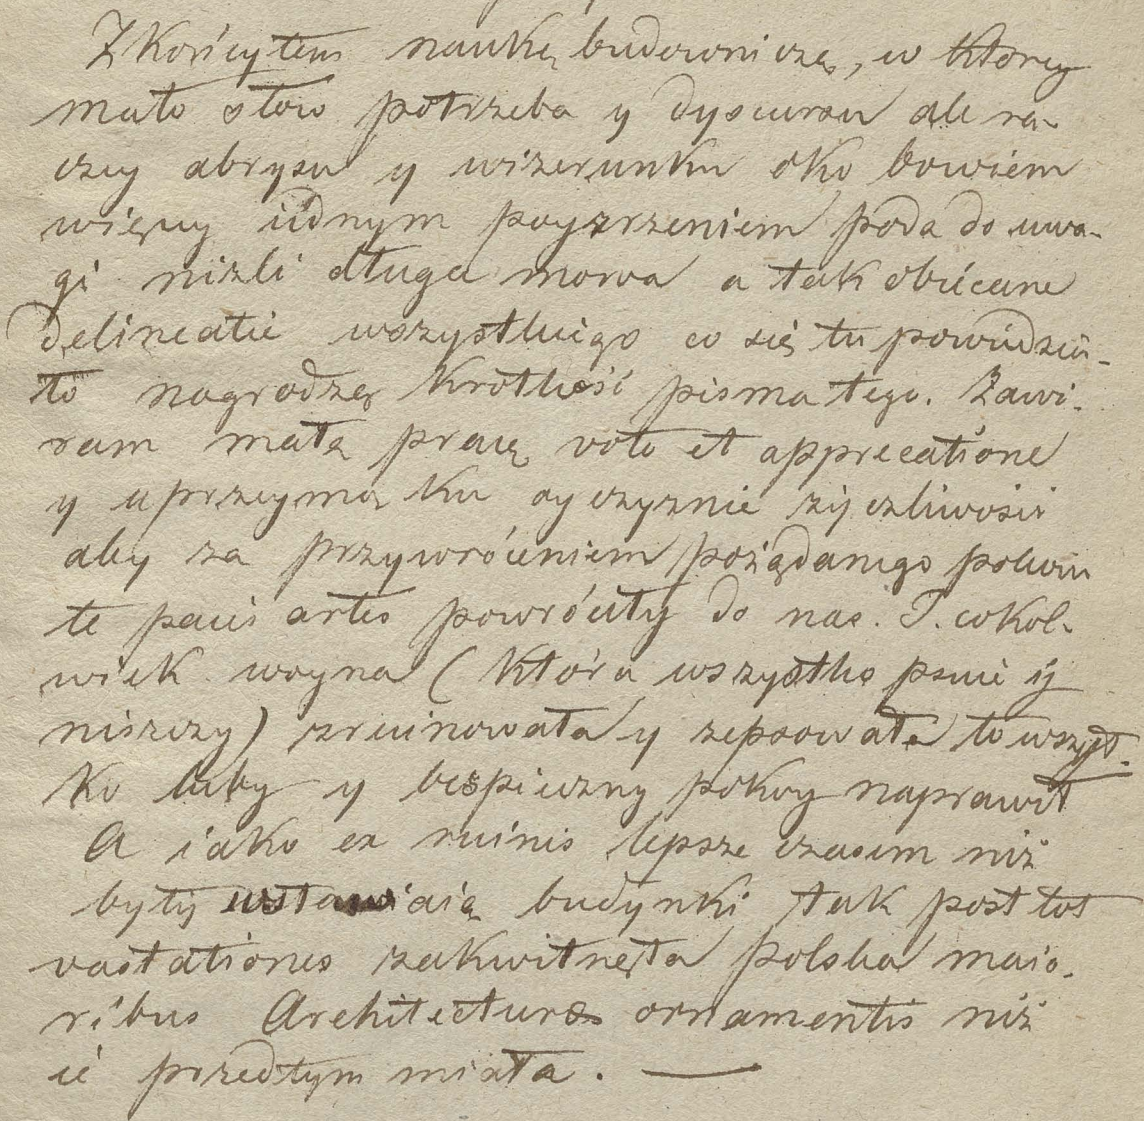 Zkończyłem naukę budowniczą, w ktorey
mało słow potrzeba y dyscursu ale ra-
czey abrysu y wizerunku oko bowiem
więcey iednym poyzrzeniem poda do uwa-
gi nizli długa mowa a tak obiecane
delineatie wszystkiego co się tu powiedzia-
ło nagrodzą krotkość pisma tego. Zawi-
ram małą pracą voto et apprecatione
y uprzeymą ku oyczyznie zyczliwością
aby za przywróceniem pożądanego pokoiu
te pacis artes powróciły do nas. I cokol-
wiek woyna (która wszystko psuie y
niszczy) zruinowała y zepsowała to wszyst-
ko luby y bespieczny pokoy naprawił
A iako ex ruinis lepsze czasem niż
były wstawiaią budynki tak post tot
vastationes zakwitnęła Polska maio-
ribus Architecturæ ornamentis niż
ie przedtym miała. —